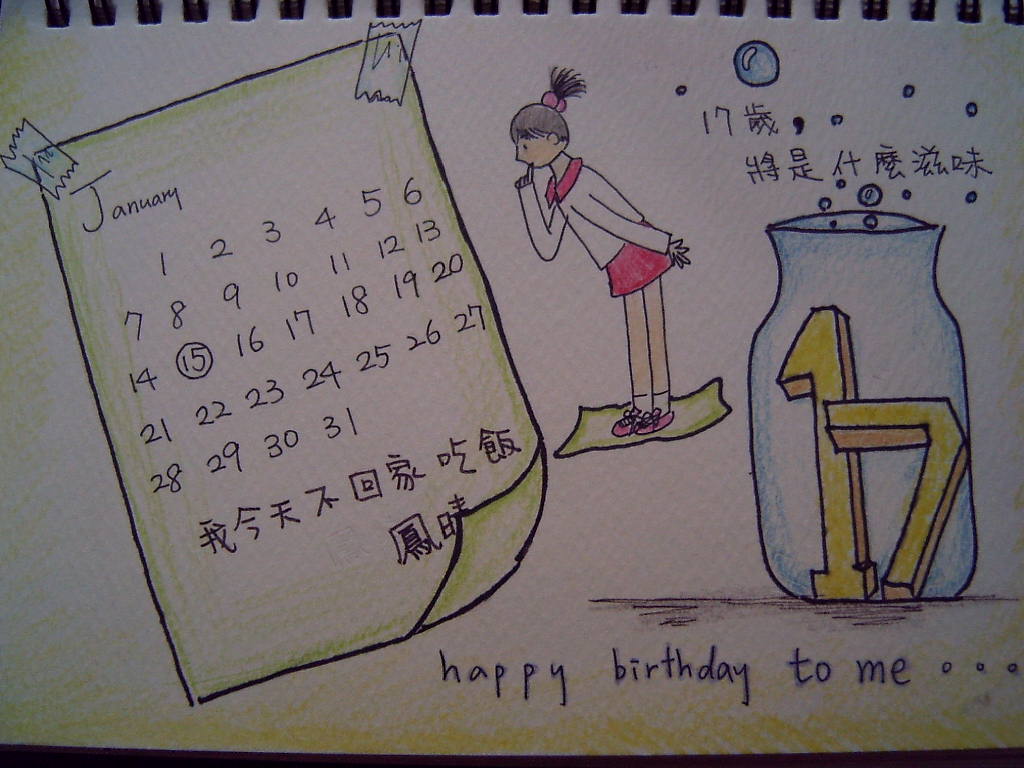 January
1 2 3 4 5 6
7 8 9 10 11 12 13
14 15 16 17 18 19 20
21 22 23 24 25 26 27
28 29 30 31
我今天不回家吃飯
鳳晴
17歲,
將是什麼滋味
17
happy birthday to me...